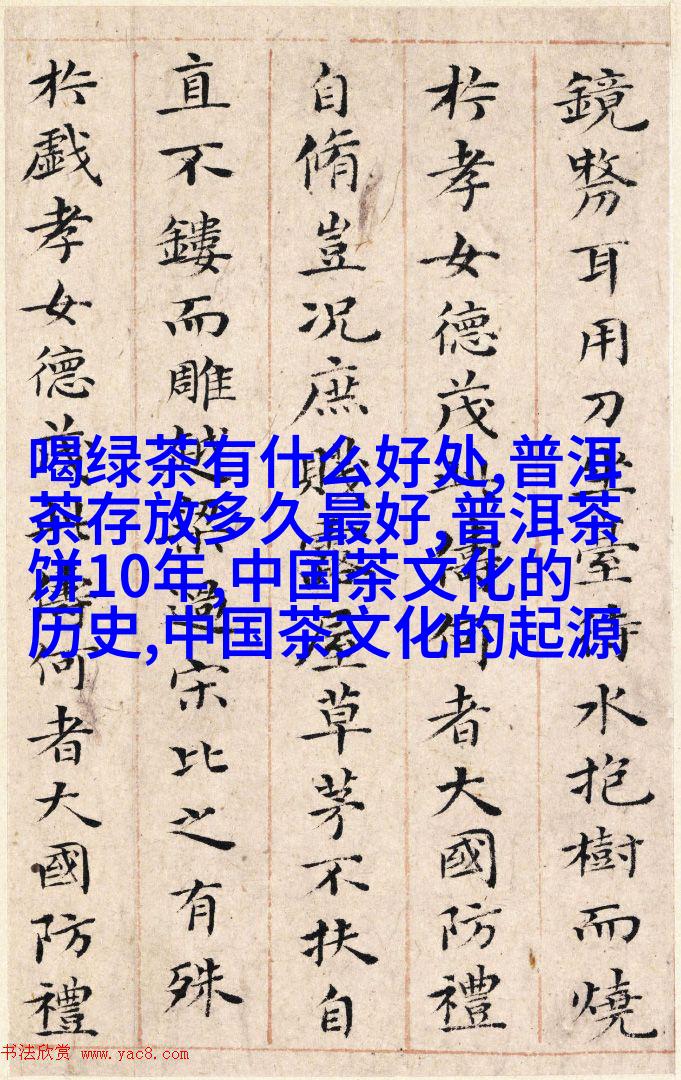 鏡剺耳用刀坐臺待水抱樹而燒
於孝女德茂此儔何者大國防禮
自脩豈况庶賤露屋草茅不扶自
直不鏤而雕越梁過宋比之有殊
於戲孝女德茂此儔何者大國防禮
喝绿茶有什么好处,普洱
茶存放多久最好,普洱茶
饼10年,中国茶文化的
历史,中国茶文化的起源
书法欣赏 www.yac8.com